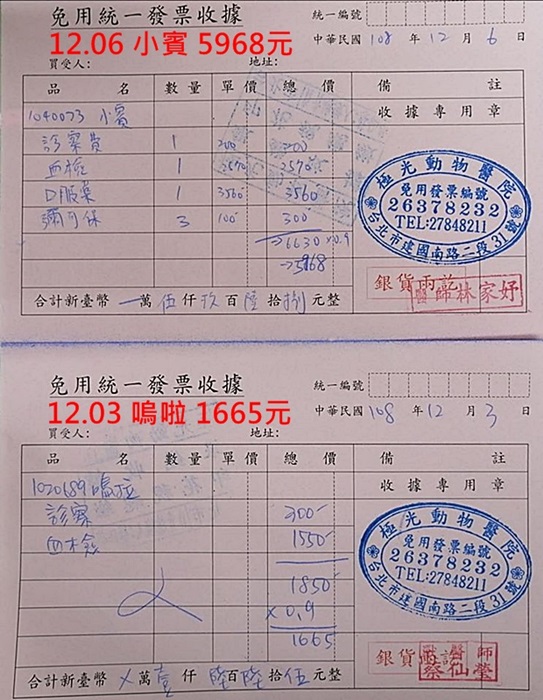 免用統一發票收據
統一編號
12.06 小賓 5968元
中華民國 108 年 12 月 6 日
買受人: 地址:
品名 數量 單價 總價 備註
1040073 小賓 收據專用章
診察費 1 200 200
血檢 1 2570 2570
口服藥 1 3560 3560
3 100 300
→6630×0.9
→5968
極光動物醫院
免用發票編號
26378232
TEL:27848211
台北市建國南路二段31號
銀貨兩訖
醫師林家妤
合計新臺幣 一萬伍仟玖百陸拾捌元整
免用統一發票收據
統一編號
12.03 嗚啦 1665元
中華民國 108 年 12 月 3 日
買受人: 地址:
品名 數量 單價 總價 備註
1020689 嗚啦 收據專用章
診察 300
血檢 1550
1850
×0.9
1665
極光動物醫院
免用發票編號
26378232
TEL:27848211
台北市建國南路二段31號
銀貨兩訖
獸醫師
蔡仙瑩
合計新臺幣 ×萬壹仟陸百陸拾伍元整